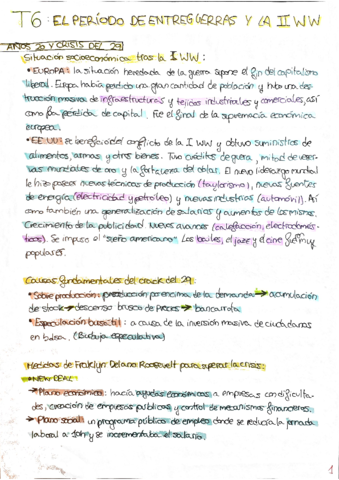 T6: EL PERÍODO DE ENTREGUERRAS Y LA II WW
AÑOS 20 Y CRISIS DEL 29
Situación socioeconómica tras la I WW:
• EUROPA: la situación heredada de la guerra supone el fin del capitalismo
liberal. Europa había perdido una gran cantidad de población y hubo una des-
trucción masiva de infraestructuras y tejidos industriales y comerciales, así
como una pérdida de capital. Fue el final de la supremacía económica
europea.
• EE.UU: se benefició del conflicto de la I WW y obtuvo suministros de
alimentos, armas y otros bienes. Tuvo créditos de guerra, mitad de reser-
vas mundiales de oro y la fortaleza del dólar. El nuevo liderazgo mundial
le hizo poseer nuevas técnicas de producción (taylorismo), nuevas fuentes
de energía (electricidad y petróleo) y nuevas industrias (automóvil). Así
como también una generalización de salarios y aumentos de los mismos.
Crecimiento de la publicidad. Nuevos avances (calefacción, electrodomés-
ticos). Se impuso el "sueño americano". Los bailes, el jazz y el cine muy
populares.
Causas fundamentales del crack del 29:
• Sobreproducción: producción por encima de la demanda → acumulación
de stock → descenso brusco de precios → bancarrota
• Especulación bursátil: a causa de la inversión masiva de ciudadanos
en bolsa. (Burbuja especulativa)
Medidas de Franklyn Delano Roosevelt para superar la crisis:
• NEW DEAL
→ Plano económico: hacía ayudas económicas a empresas con dificulta-
des, creación de empresas públicas y control de mecanismos financieros.
→ Plano social: un programa público de empleo donde se reducía la jornada
laboral a 40h y se incrementaba el salario.
1